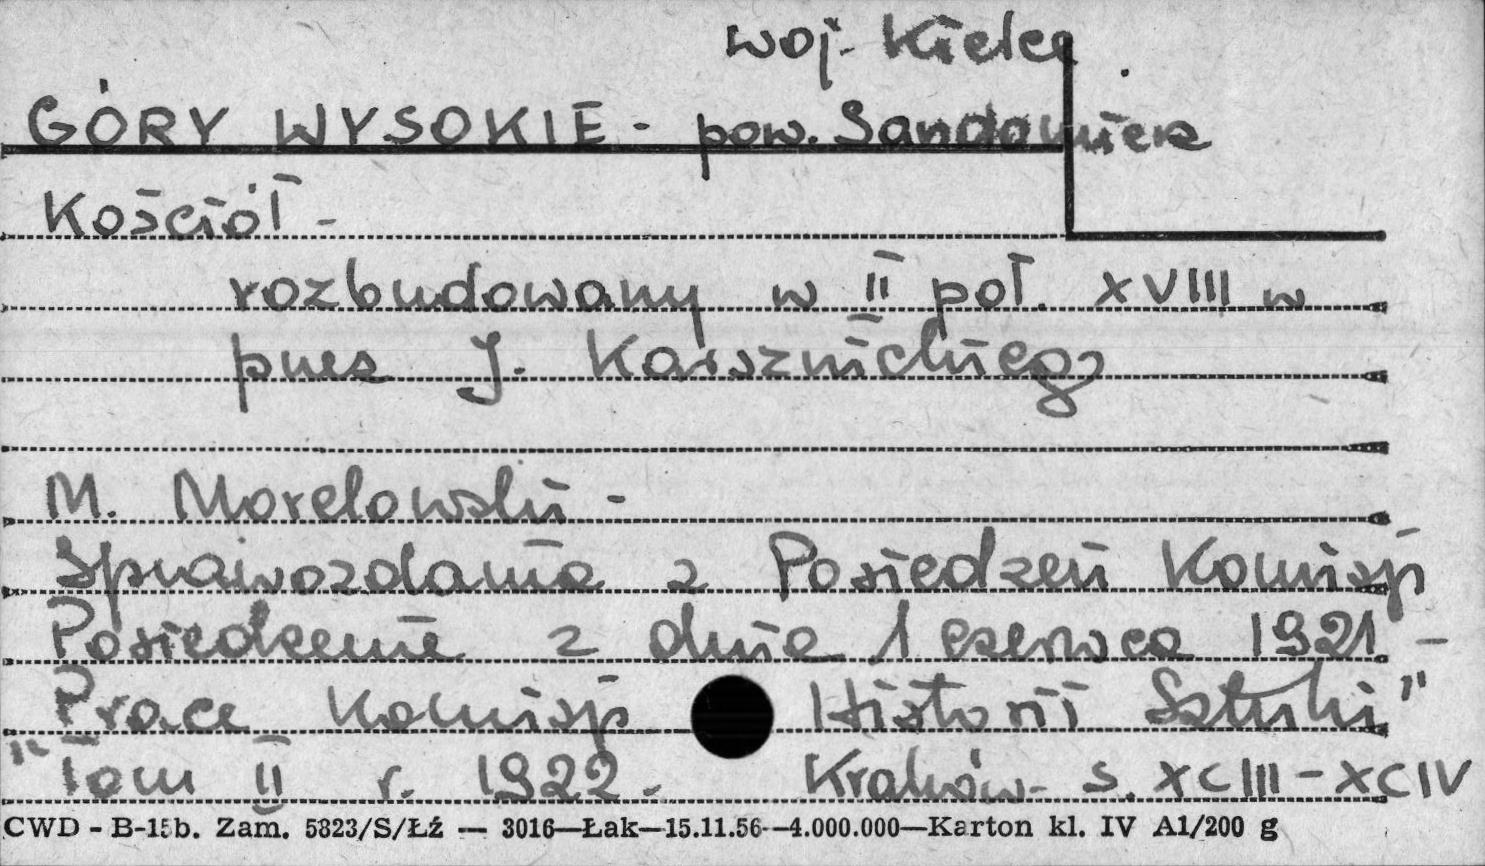 woj. Kielce
GÓRY WYSOKIE - pow. Sandomierz
Kościół -
rozbudowany w II poł. XVIII w
przez J. Karsznickiego
M. Morelowski -
Sprawozdania z Posiedzeń Komisji
Posiedzenie z dnia 1 czerwca 1921 -
Prace Komisji Historii Sztuki"
"Tom II r. 1922. Kraków - s. XCIII - XCIV
CWD - B-15b. Zam. 5823/S/Łź — 3016—Łak—15.11.56—4.000.000—Karton kl. IV A1/200 g